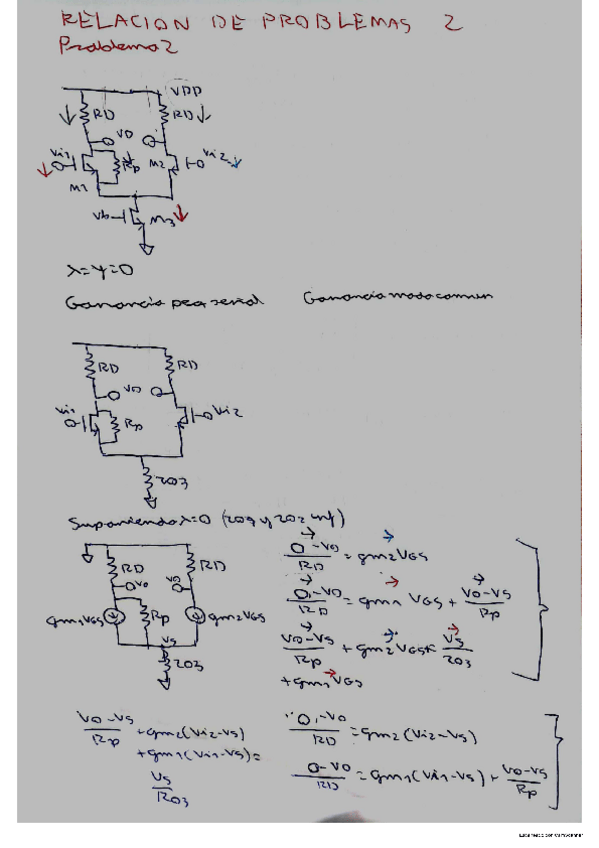 RELACION DE PROBLEMAS 2
Problema 2
VDD
RD
RD
VO
Vi1
Rp
M2
Vi2
M1
Vb
M3
λ=γ=0
Ganancia peq senal
Ganancia modo comun
RD
RD
VO
Vi1
Rp
Vi2
ro3
Suponiendo λ=0 (ro1 y ro2 inf)
RD
RD
Vo
VO
gm1VGS
Rp
gm2VGS
Vs
ro3
0-VO/RD = gm2VGS
0-VO/RD = gm1VGS + VO-VS/Rp
VO-VS/Rp + gm2VGS
VS/ro3
+gm1VGS
VO-VS/Rp + gm2(Vi2-VS)
+gm1(Vi1-VS)=
VS/ro3
0-VO/RD = gm2(Vi2-VS)
0-VO/RD = gm1(Vi1-VS) + VO-VS/Rp